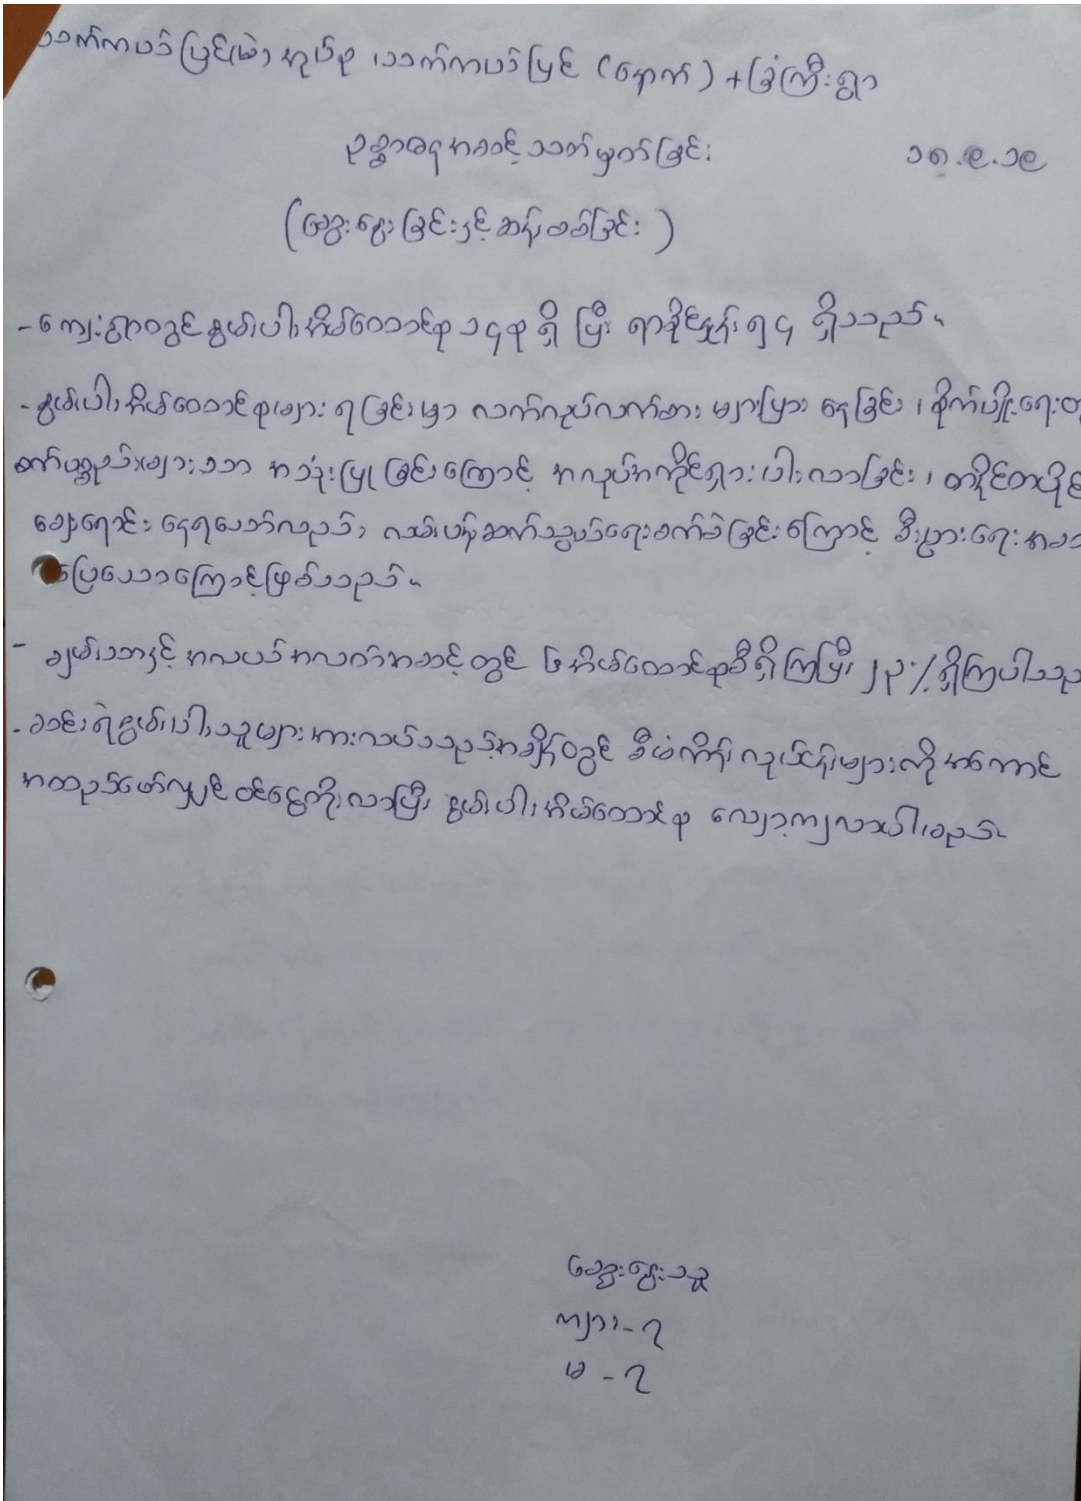 သက်ကယ်ပြင်(မဲ) အုပ်စု ၊ သက်ကယ်ပြင် (နောက်) + ခြံကြီးရွာ
ဥစ္စာဓနအဆင့်သတ်မှတ်ခြင်း ၁၈.၉.၁၉
(ဆွေးနွေးခြင်းနှင့်ဆန်းစစ်ခြင်း)
- ကျေးရွာတွင် နွမ်းပါးအိမ်ထောင်စု ၁၄စု ရှိ ပြီး ရာခိုင်နှုန်း ၅၄ ရှိသည်။
- နွမ်းပါးအိမ်ထောင်စုများ ရခြင်းမှာ လက်လုပ်လက်စား များပြား နေခြင်း ၊ စိုက်ပျိုးရေးတ
စက်ပစ္စည်းများသာ အသုံးပြုခြင်းကြောင့် အလုပ်အကိုင်ရှားပါးလာခြင်း ၊ တနိုင်တပိုင်
ဈေးရောင်းနေရသော်လည်း လမ်းပန်းဆက်သွယ်ရေးခက်ခဲခြင်းကြောင့် စီးပွားရေးအဆ
ပြေသောကြောင့်ဖြစ်သည်။
- ချမ်းသာနှင့် အလယ်အလတ်အဆင့်တွင် ၆အိမ်ထောင်စုစီရှိကြပြီး ၂၃% ရှိကြပါသည
- ဆင်းရဲနွမ်းပါးသူများအားလပ်သည့်အချိန်တွင် စီမံကိန်းလုပ်ငန်းများကို အကောင်
အထည်ဖော်လျှင် ဝင်ငွေတိုးလာပြီး နွမ်းပါးအိမ်ထောင်စု လျော့ကျလာပါမည်။
ဆွေးနွေးသူ
ကျား - ၇
မ - ၇